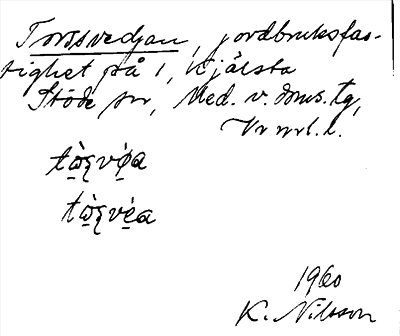 Torssvedjan, jordbruksfas-
tighet på 1, Kjälsta
Stöde sn, Med. v. doms. tg,
Vnrl. l.
tὼ̣ʂvẹ́a
1960
K. Nilsson